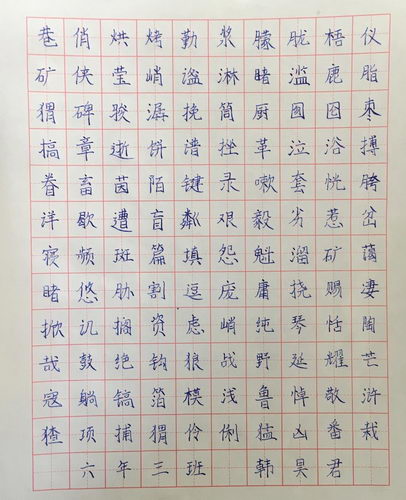 巷俏烘烤勤浆朦胧梧仪
矿侠莹峭谧淋睹滥鹿脂
猬碑骏潺挽筒厨囫囵枣
搞章逝饼谱挫革泣浴搏
眷畜茵陌键录嗽套恍胯
洋歇遭盲粼艰毅劣惹岔
寝频斑篇填怨魁溜矿蔼
睹悠胁割逗庞庸挠赐凄
掀讥搁资虑峭纯琴恬陶
哉鼓绝钩狼战野延耀芒
寇躺镐箔模浅鲁悼敬浒
猹项捕猬伶俐猛凶番栽
六年三班 韩昊君